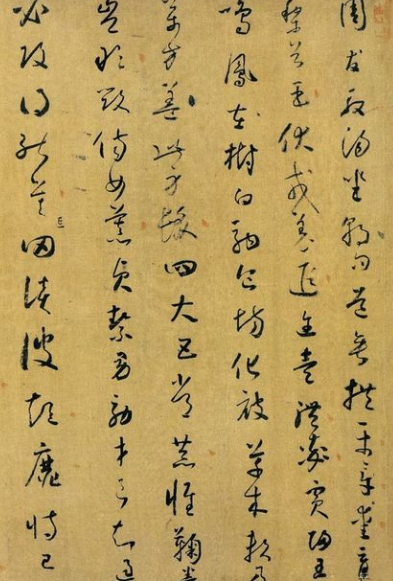 周發殷湯坐朝問道垂拱平章愛育
黎首臣伏戎羌遐邇壹體率賓歸王
鳴鳳在樹白駒食場化被草木賴及
萬方蓋此身髮四大五常恭惟鞠養
豈敢毀傷女慕貞絜男效才良知過
必改得能莫罔談彼短靡恃己